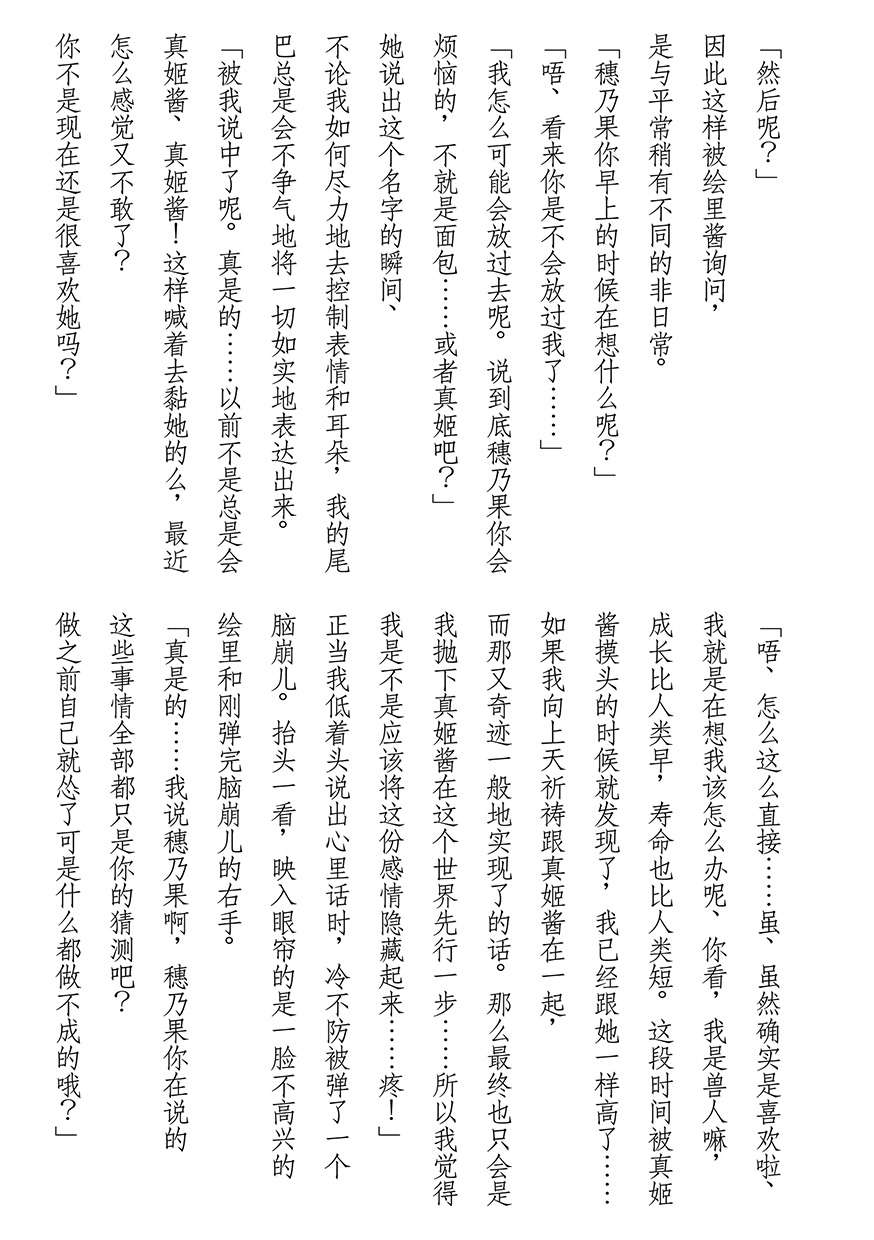 「然后呢？」
因此这样被绘里酱询问，
是与平常稍有不同的非日常。
「穗乃果你早上的时候在想什么呢？」
「唔、看来你是不会放过我了……」
「我怎么可能会放过去呢。说到底穗乃果你会
烦恼的，不就是面包……或者真姬吧？」
她说出这个名字的瞬间、
不论我如何尽力地去控制表情和耳朵，我的尾
巴总是会不争气地将一切如实地表达出来。
「被我说中了呢。真是的……以前不是总是会
真姬酱、真姬酱！这样喊着去黏她的么，最近
怎么感觉又不敢了？
你不是现在还是很喜欢她吗？」
「唔、怎么这么直接……虽、虽然确实是喜欢啦、
我就是在想我该怎么办呢、你看，我是兽人嘛，
成长比人类早，寿命也比人类短。这段时间被真姬
酱摸头的时候就发现了，我已经跟她一样高了……
如果我向上天祈祷跟真姬酱在一起，
而那又奇迹一般地实现了的话。那么最终也只会是
我抛下真姬酱在这个世界先行一步……所以我觉得
我是不是应该将这份感情隐藏起来……疼！」
正当我低着头说出心里话时，冷不防被弹了一个
脑崩儿。抬头一看，映入眼帘的是一脸不高兴的
绘里和刚弹完脑崩儿的右手。
「真是的……我说穗乃果啊，穗乃果你在说的
这些事情全部都只是你的猜测吧？
做之前自己就怂了可是什么都做不成的哦？」